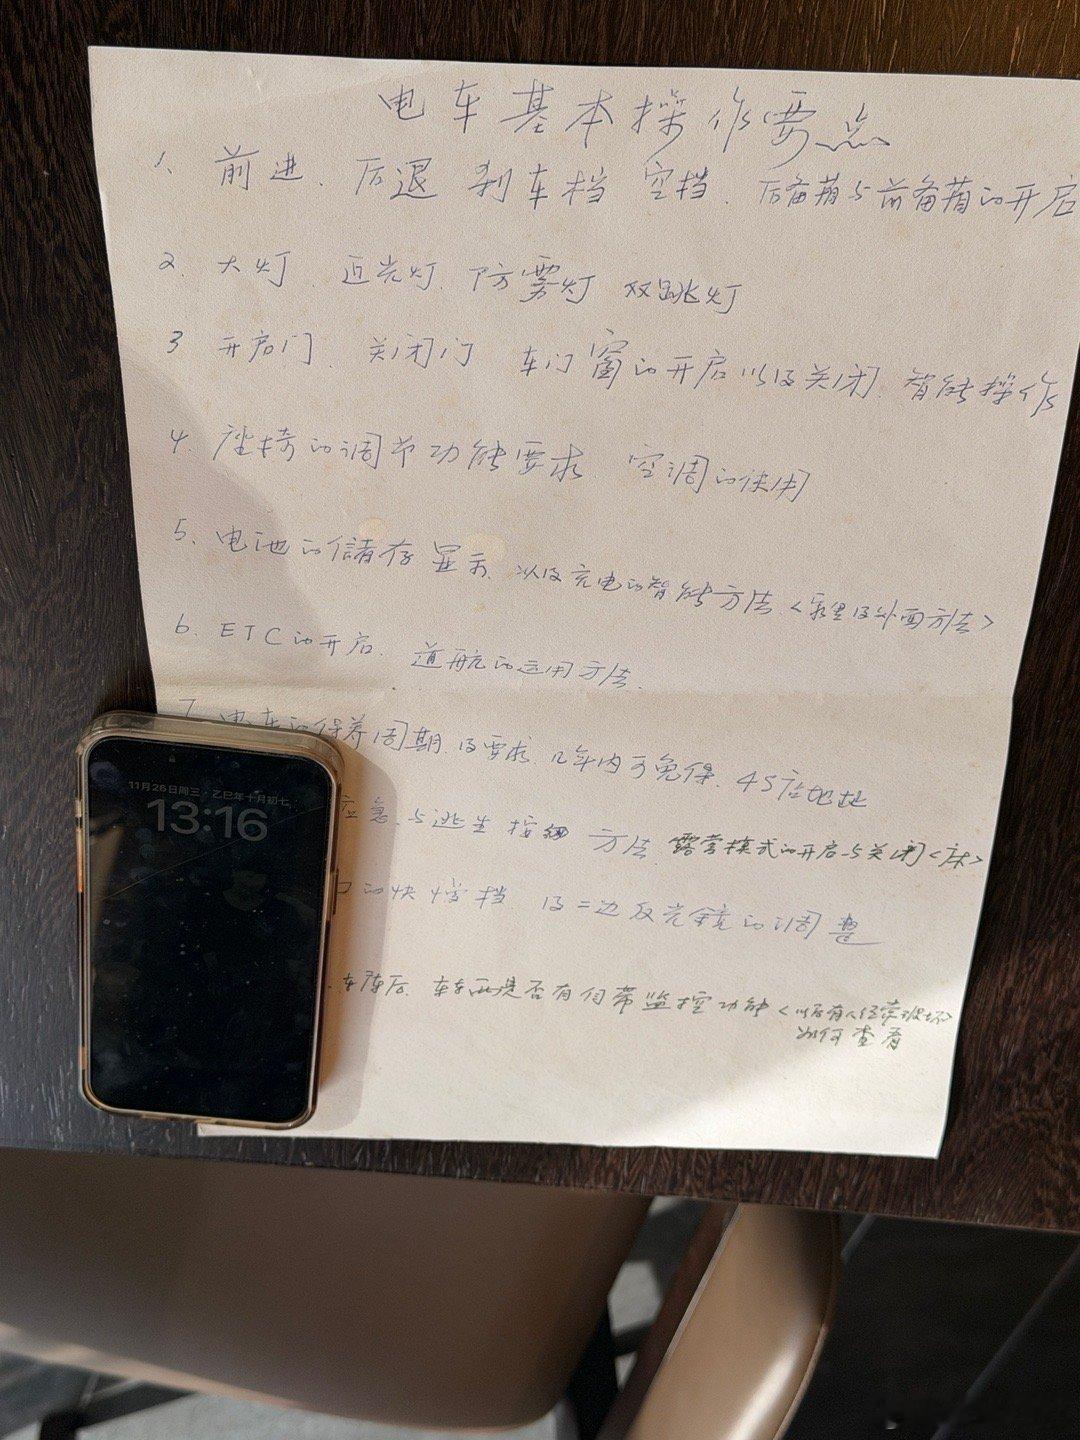 电车基本操作要点
1、前进、后退 刹车档 空档、后备箱与前备箱的开启
2、大灯、近光灯、防雾灯 双跳灯
3 开启门、关闭门 车门窗的开启以及关闭、智能操作
4、座椅的调节功能要求、空调的使用
5、电池的储存显示、以及充电的智能方法、<家里及外面方法>
6、ETC的开启、道航的运用方法、
7、电车的保养周期及要求、几年内可免保、4S店地址
应急与逃生按钮 方法、露营模式的开启与关闭<床>
的快慢档 及二边反光镜的调整
车停后、车东西是否有自带监控功能<以后有人经常破坏>
如何查看
11月26日周三·乙巳年十月初七
13:16